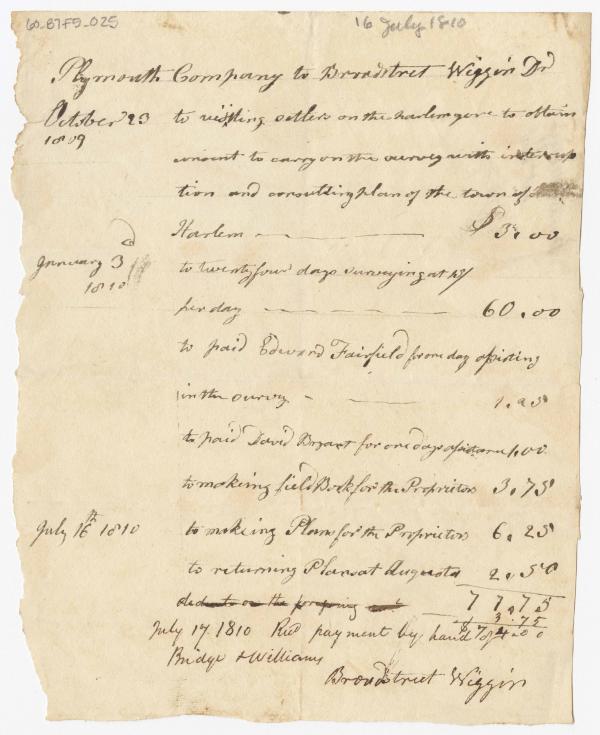 60-87F5-025
16 July 1810
Plymouth Company to Bradstret Wiggin Dr
October 23 1809 to visiting setlers on the harlem gore to obtain
consent to carry on the survey with interrup
tion and consulting plan of the town of
Harlem $ 3.00
January 3d 1810 to twenty four days surveying at 15/
per day 60.00
to paid Edward Fairfield for one day asisting
in the survey 1.25
to paid David Bryant for one days asistance 1.00
to making field Book for the Proprietors 3.75
July 16th 1810 to making Plan for the Proprietors 6.25
to returning Plans at Augusta 2.50
77.75
3.75
74.00
July 17. 1810 Recd payment by hand of
Bridge & Williams
Bradstreet Wiggin